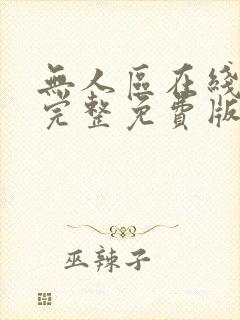 無人區在綫
完整免費版
巫辣子